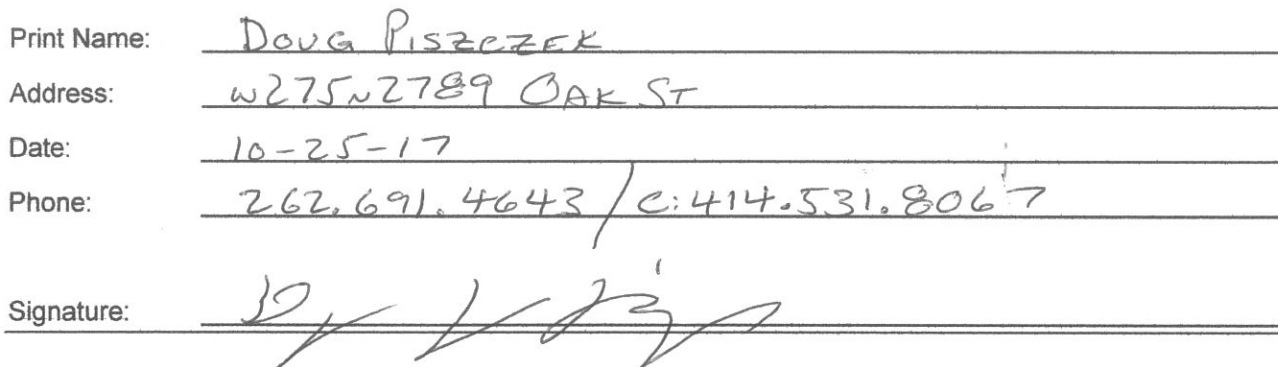 Print Name: Doug Piszczek
Address: W275N2789 Oak St
Date: 10-25-17
Phone: 262.691.4643 / C: 414.531.8067
Signature: